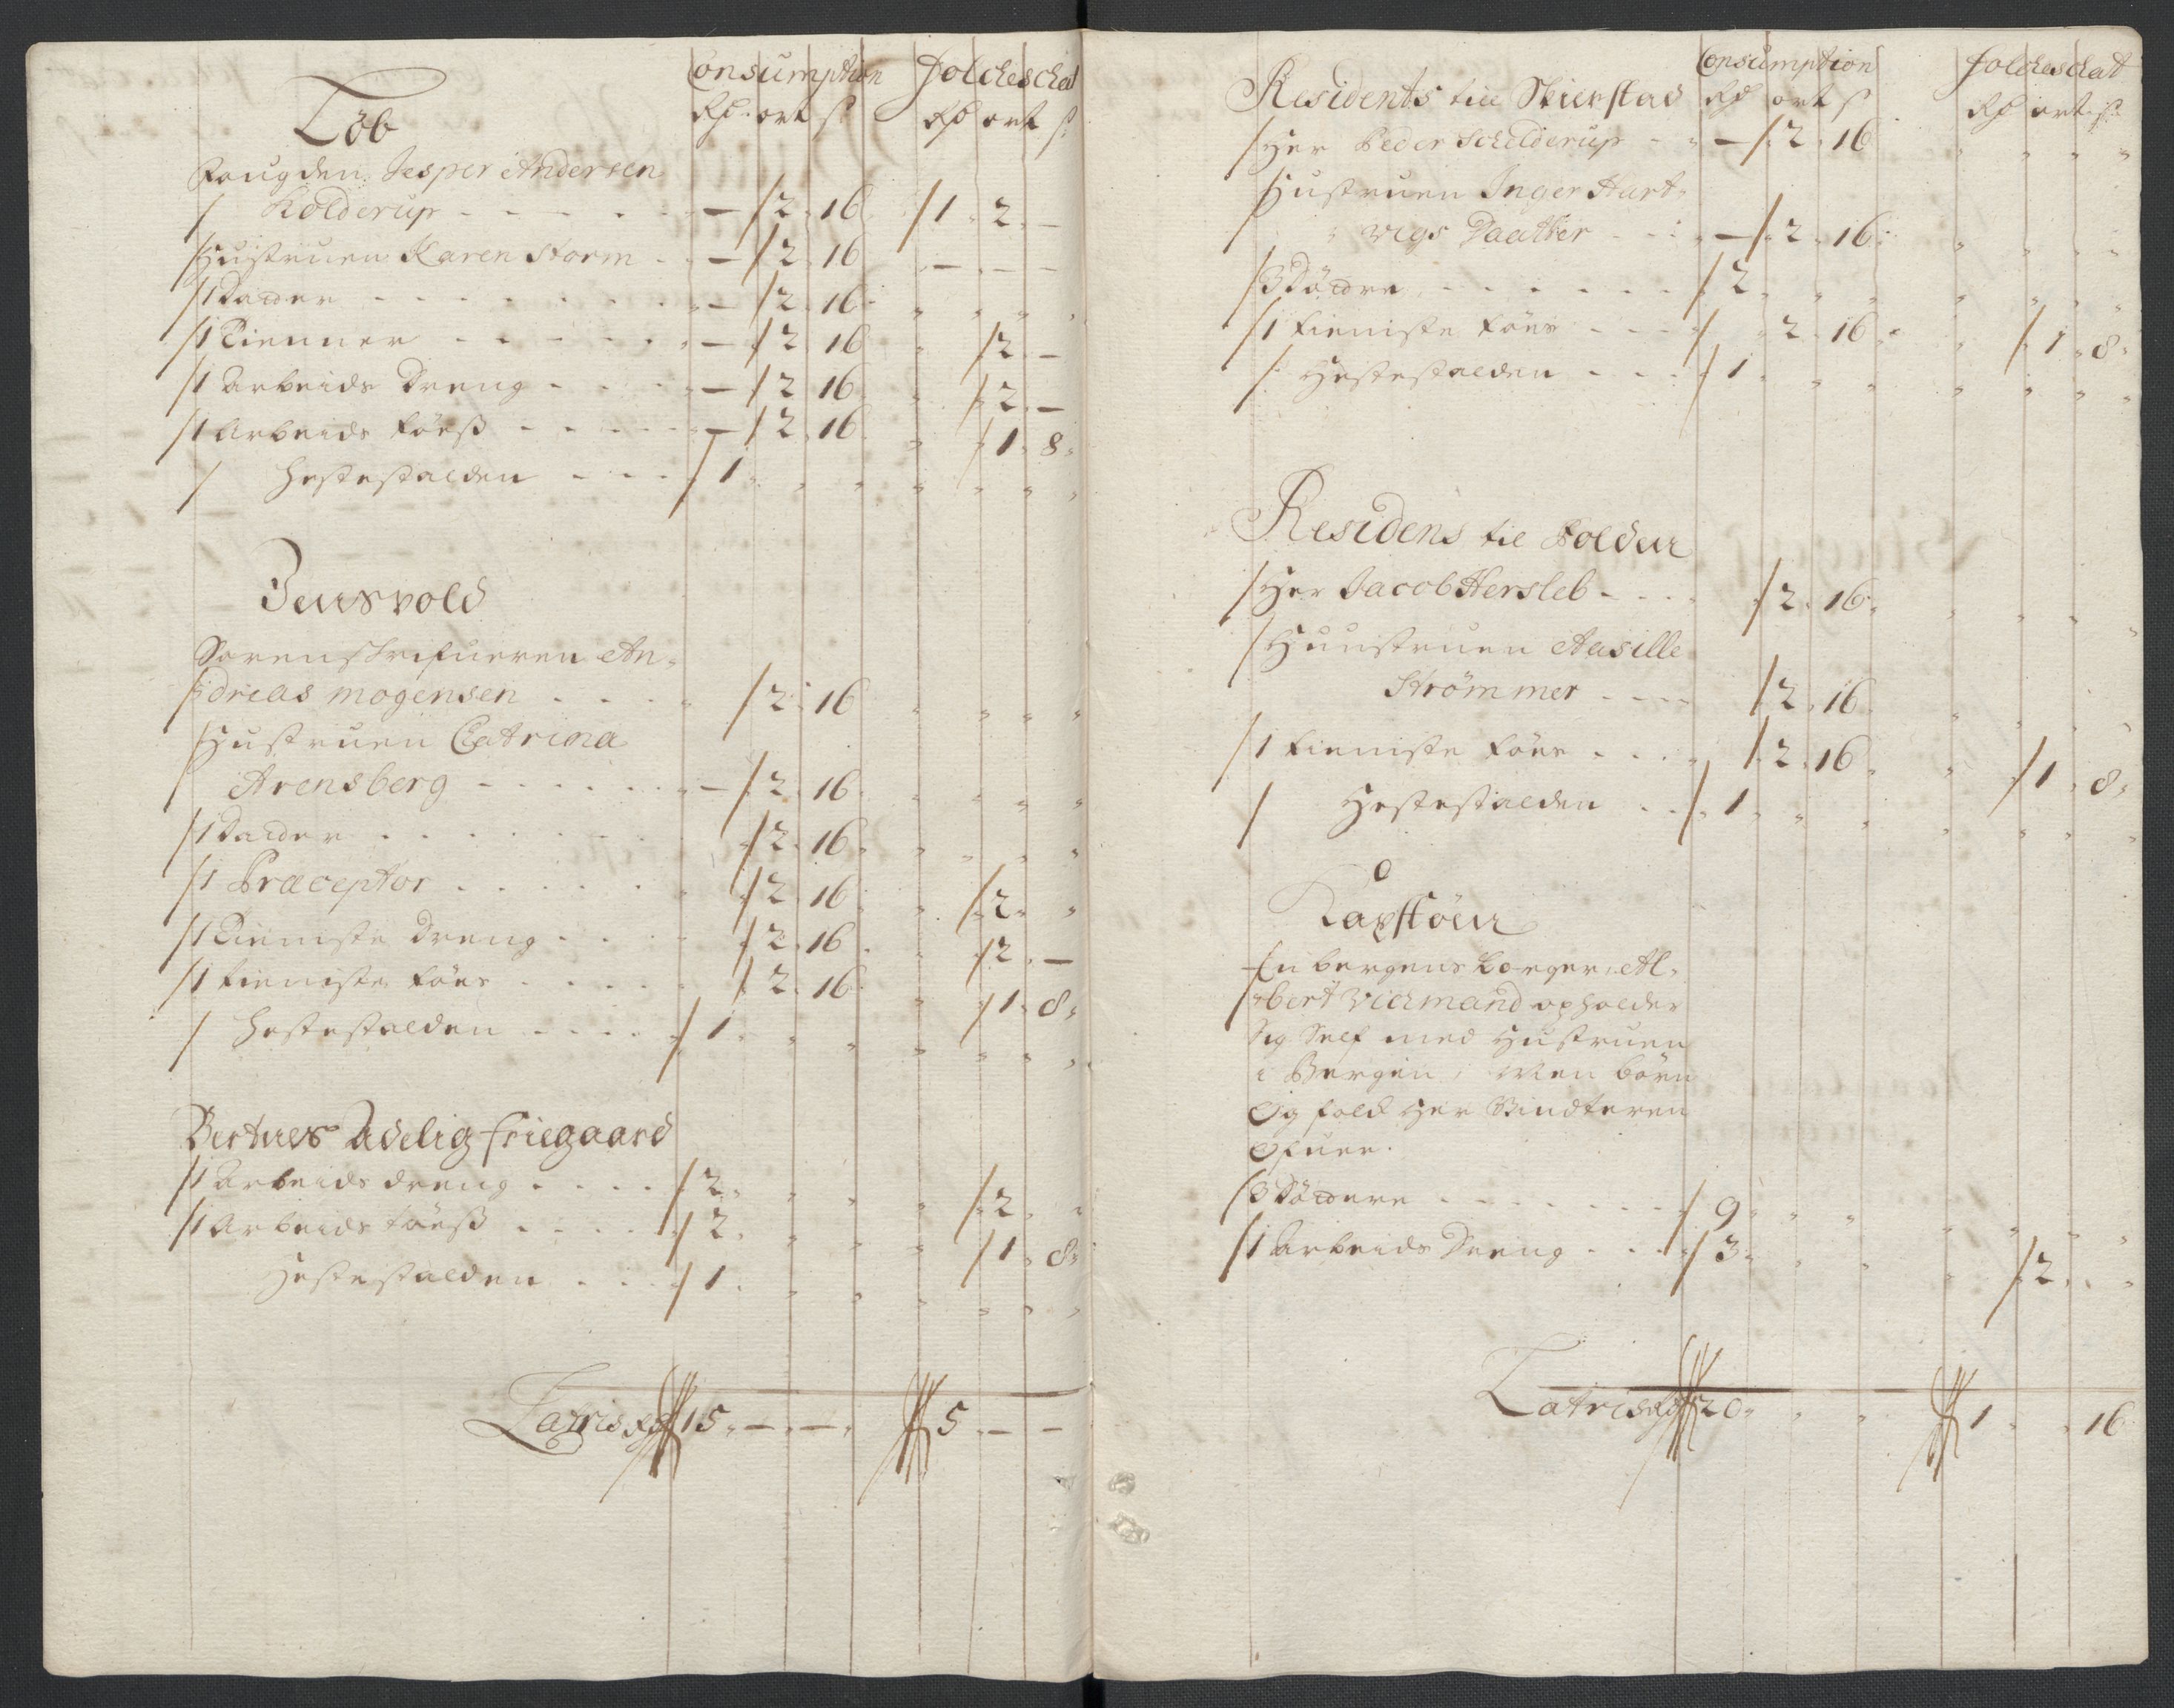 Consumption Folcheschat
Løb Rd ort ß Rd ort ß
Fougden Jesper Andersen
Kolderup - - - - - — 2 16 1 2 —
Hustruen Karen Storm - — 2 16 — — —
1 Datter - - - - - - — 2 16
1 Tienner - - - - - — 2 16 2 —
1 Arbeids Dreng - - - — 2 16 2 —
1 Arbeids Töes - - - - — 2 16 1 8
Hestestalden - - - 1
Sorenskrifueren An-
dreas Mogensen - - - 2 16
Hustruen Catrina
Arensberg - - - - - — 2 16
1 Datter - - - - - - 2 16
1 Præceptor - - - - - 2 16 2
1 Tieniste Dreng - - - 2 16 2 —
1 tieniste töes - - - - 2 16 1 8
Hestestalden - - - - 1
Adelig friegaard
1 Arbeids dreng - - - - 2 2
1 Arbeids töes - - - - 2 1 8
Hestestalden - - - 1
Latris Rd 15 — — 5 — —
Consumption Folcheschat
Residents till Skierstad Rd ort ß Rd ort ß
Her Peder Schelderup - - — 2 16
Hustruen Inger Hart-
vigs Daatter - - — 2 16
3 Döttre - - - - - - 2
1 tieniste töes - - - 2 16 1 8
Hestestalden - - - 1
Residens til Folden
Her Jacob Hersleb - - - 2 16
Huustruen Aasille
Strömmer - - - 2 16
1 tieniste töes - - - 2 16 1 8
Hestestalden - - 1
En bergens borger Al-
bert opholder
sig Self med Hustruen
i Bergen, Men börn
Og folck her Vindteren
Ofuer.
3 Döttere - - - - - - 9
1 Arbeids Dreng - - - 3 2
Latris Rd 20 1 16